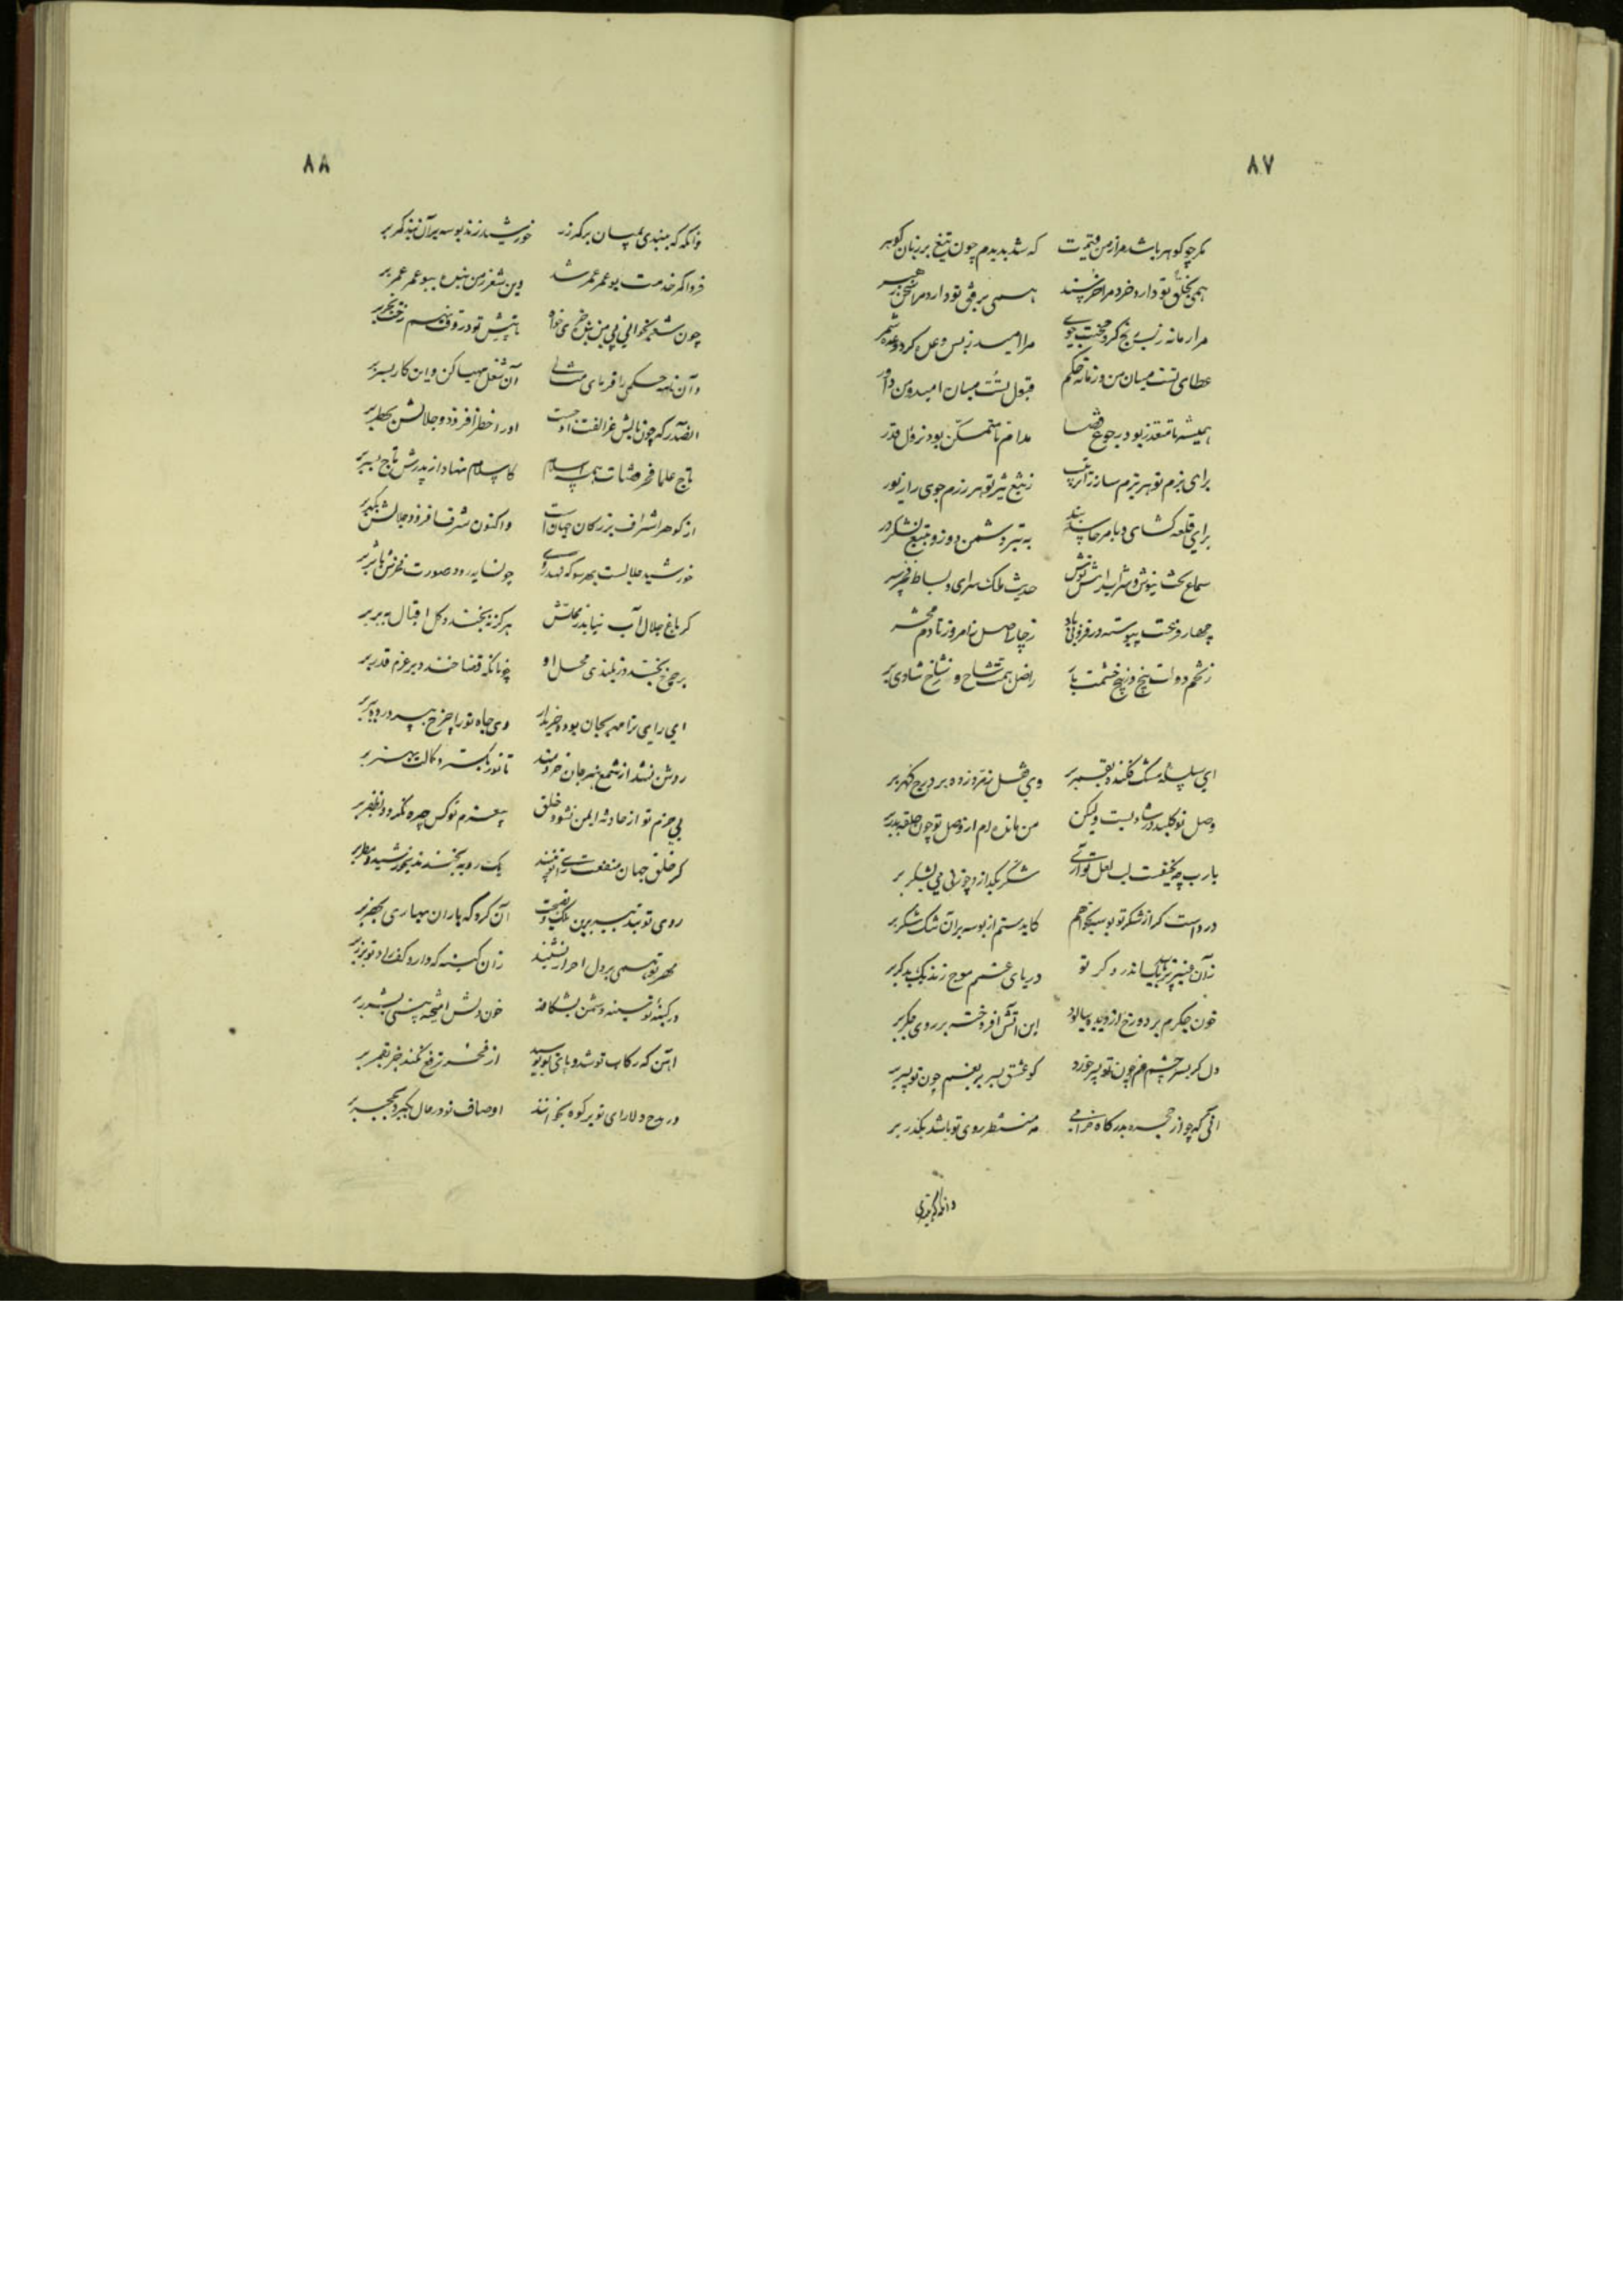 ٨٧
مگر چو گوهر باشد مرا ز من قیمت که شد بدیدم چون تیغ بر زبان گوهر
همی بخلق تو دارد خرد مرا خرسند همی برفق تو دارد مرا سخن
مرا زمانه ز بس رنج کرد محنت جوی مرا امید ز بس وعل کرد وعده شمر
عطای تست میان من و زمانه حکم قبول تست میان امید و من داور
همیشه تا متعذر بود رجوع قضا مدام تا متمکن بود نزول قدر
برای بزم تو هر بزم ساز را ترتیب ز تیغ تیز تو هر رزم جوی را زیور
برای قلعه گشای و بامر جای به تیر دشمن دوز و بتیغ لشکر در
سماع بخت نیوش و شراب نوش حدیث ملک سرای و بساط فخر سپر
چهار وقت پیوسته در فزونی باد ز چار اصل ز امروز تا دم محشر
ز تخم دولت بیخ و ز بیخ حشمت ز اصل همت شاخ و ز شاخ شادی بر
ای سلسله مشک فکنده بقمر بر وی قفل زمرد زده بر درج گهر بر
وصل تو کلید در شادیست ولیکن من مانده ام از وصل تو چون حلقه بدر بر
یارب چه لطیفست لب لعل تو شکر بگدازد چو زنی می بشکر بر
در دل است کز از شکر تو بوسه بخواهم کاید ستم از بوسه بر آن تنگ شکر بر
زان عنبر اندر گر تو دریای غمم موج زند یک بدگر بر
خون جگرم بر دو رخ از دیده بپالود این آتش افروخته بر روی جگر بر
دل کز پسر چشم غم چون تو پسر خورد کو عشق پسر بر پسر چون تو پسر بر
آنی که چو از حجره بدرگاه خرامی مه منتظر روی تو باشد بگذر بر
وانگه که ببندی
٨٨
وانگه که ببندی بمیان بر کمر زر خورشید زند بوسه بر آن بند کمر بر
فردا که خدمت بو عمر عمر شد وین شعر من ببو عمر عمر بر
چون شعر بخوانی می خواه تا پیش تو
وآن نامه حکمی را فرمای مثالی آن شغل مهیا کن و این کار بسر بر
الصدر که چون بالش عز الفت او جست او را خطر افزود و جلالش بخطر بر
تاج علما فخر قضات همه اسلام کاسلام نهاد از پدرش تاج بسر بر
از گوهر اشراف بزرگان جهان است واکنون شرف افزود جلالش بگهر بر
خورشید جلالست بهر سو که نهد روی چون سایه رود صورت فخرش باثر بر
گر باغ جلال آب نیابد ز محلش هرگز نه بخندد گل اقبال ببر بر
بر چرخ بخندد ز بلندی محل او چونانکه قضا خندد بر عزم قدر بر
ای رای ترا مهر بجان بوده خریدار وی جاه تو را چرخ بپرورده ببر بر
روشن نشد از شمع هنر جان خردمند تا نور نگسترد کمالت بهنر بر
بی حزم تو از حادثه ایمن نشود خلق بی عزم تو کس چیره نگردد بظفر بر
گر خلق جهان منفعت رای تو بینند یک رویه بخندند بخورشید و مطر بر
روی تو بتدبیر بدین ملک و نصیحت آن کرد که باران بهاری بخضر بر
مهر تو همی بر دل احرار نشیند زان کینه که دارد کف راد تو بزر بر
در کینه تو سینه دشمن بشکافد خون دلش آمیخته بینی بشرر بر
آهن که رکاب تو شد و پای تو بوسید از فخر ترفع کند خر بقمر بر
در مدح دلارای تو بر کوه بخوانند اوصاف تو در حال بگیرد بحجر بر